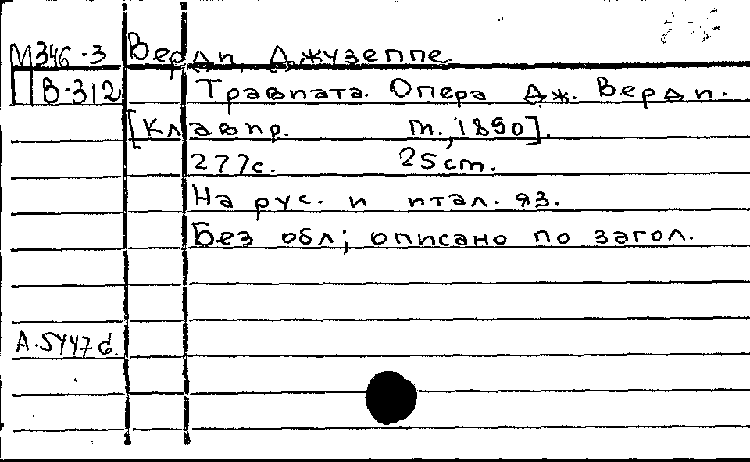 М346-3 Верди, Джузеппе.
В-312 Травиата. Опера Дж. Верди.
[Клавир. М., 1890].
277с. 25см.
На рус. и итал. яз.
Без обл; описано по загол.
А.5447б.